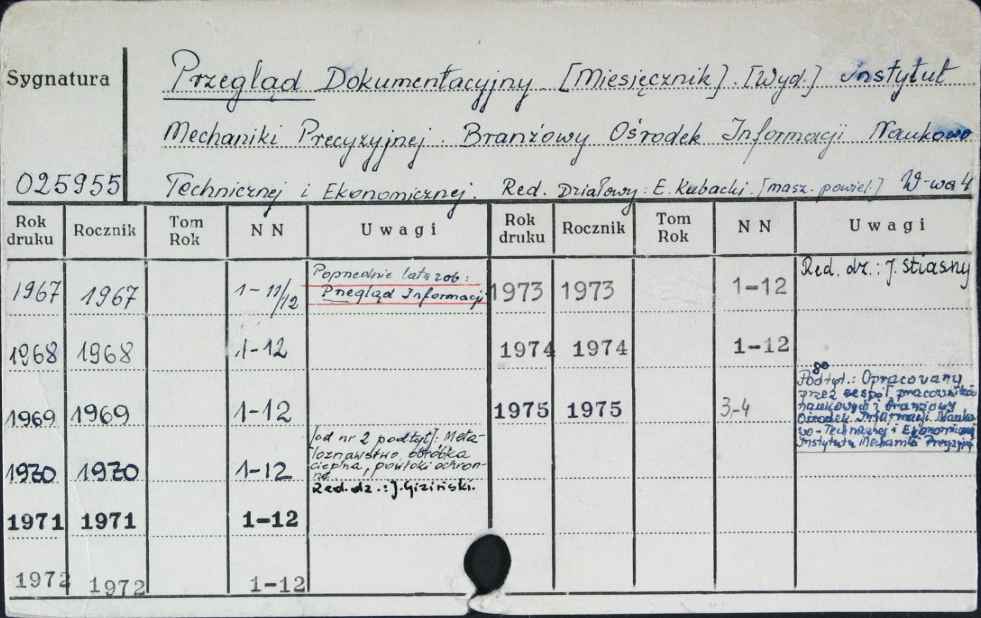 Sygnatura
Przegląd Dokumentacyjny [Miesięcznik]. [Wyd.] Instytut
Mechaniki Precyzyjnej. Branżowy Ośrodek Informacji Naukowo
025955
Technicznej i Ekonomicznej. Red. Działowy: E. Kubacki. [masz. powiel.] W-wa 4
Rok druku Rocznik Tom Rok NN Uwagi Rok druku Rocznik Tom Rok NN Uwagi
1967 1967 1-11/12 Poprzednie lata zob: Przegląd Informacji
1968 1968 1-12
1969 1969 1-12
1970 1970 1-12 [od nr 2 podtyt]. Meta-
loznawstwo, obróbka
cieplna, powłoki ochron-
ne
Red. dz.: J. Giziński.
1971 1971 1-12
1972 1972 1-12
1973 1973 1-12 Red. dz.: J. Stiasny
1974 1974 1-12
1975 1975 3-4 Podtyt.: Opracowany
przez zespół pracowników
naukowych i Branżowy
Ośrodek Informacji Nauko-
wo-Technicznej i Ekonomicznej
Instytutu Mechaniki Precyzyj.